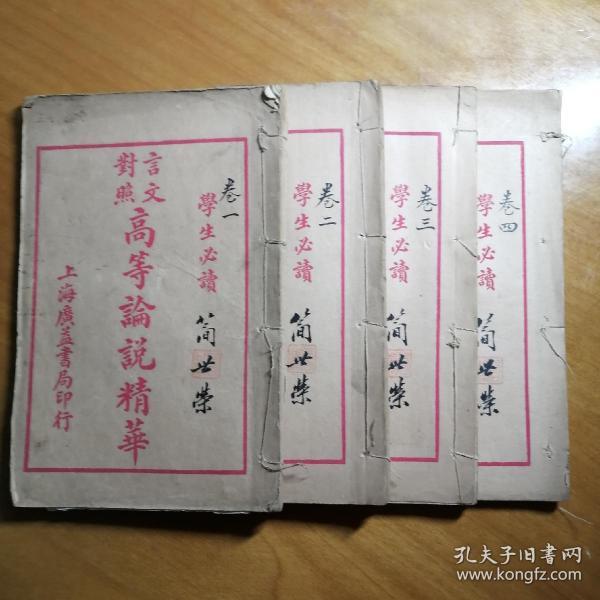 卷一
學生必讀
簡世榮
言文
對照
高等論說精華
上海廣益書局印行
卷二
學生必讀
簡世榮
卷三
學生必讀
簡世榮
卷四
學生必讀
簡世榮
孔夫子旧书网
www.kongfz.com